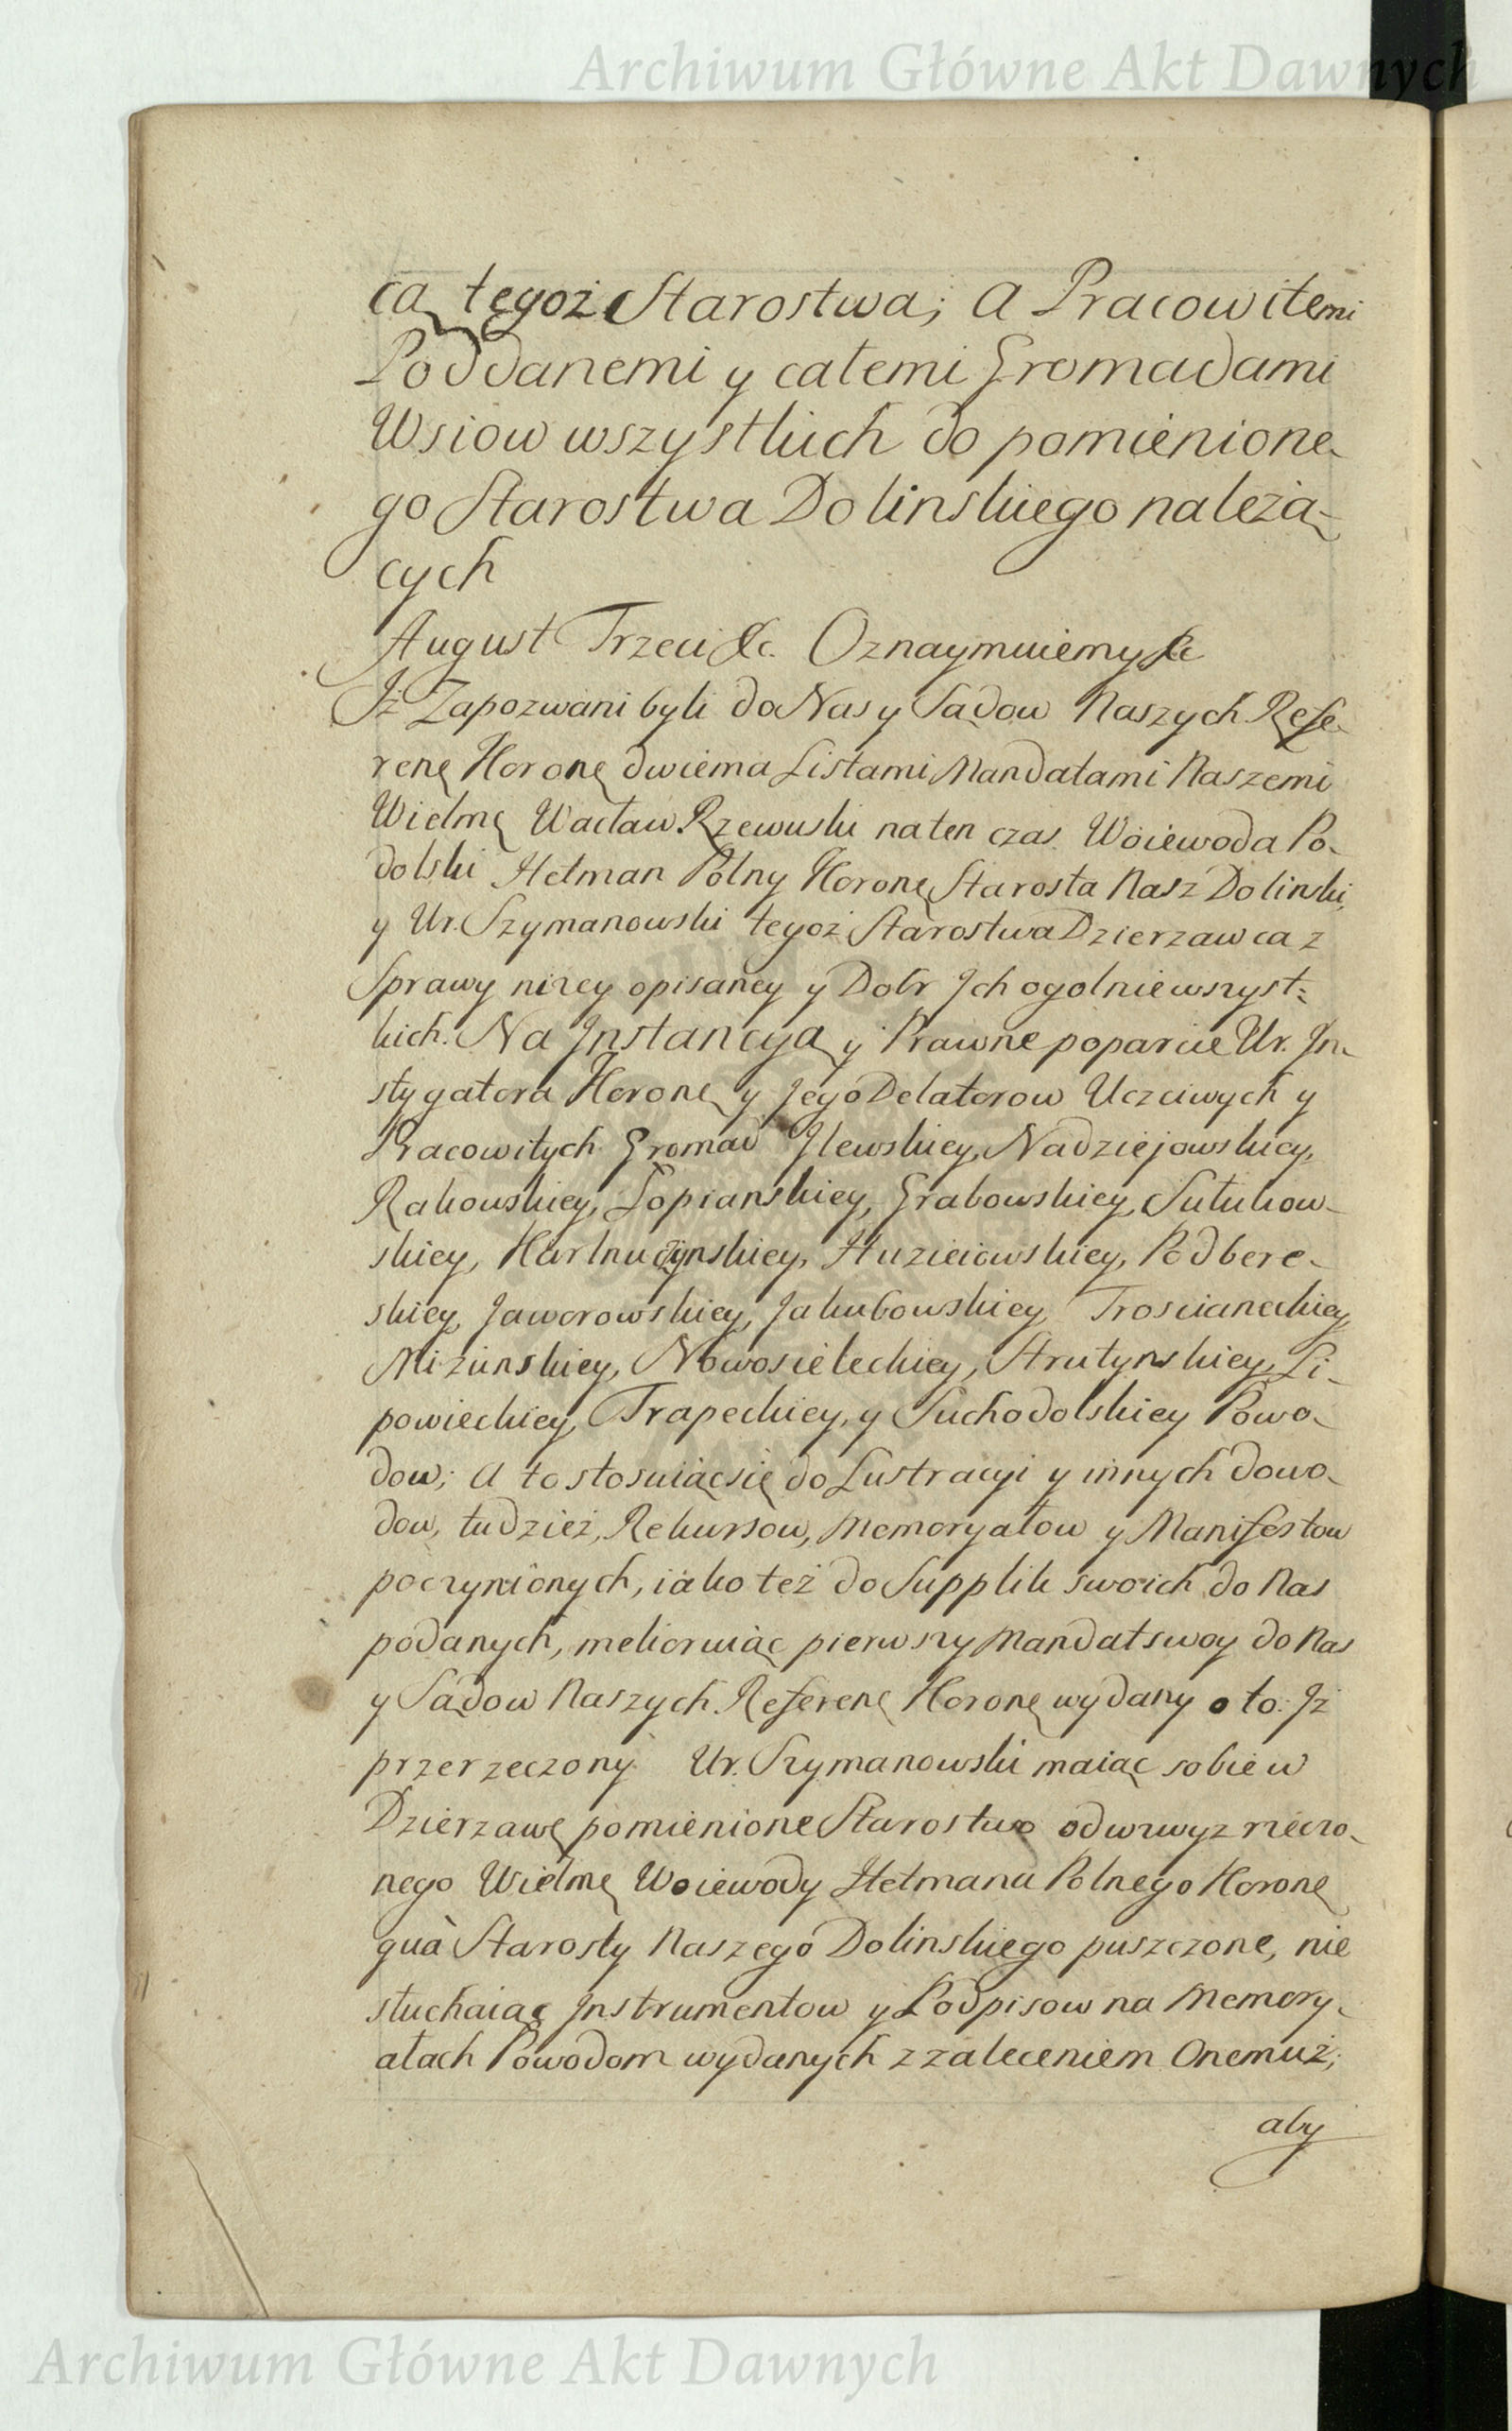 Archiwum Główne Akt Dawnych
cą tegoż Starostwa; A Pracowitemi
Poddanemi y całemi Gromadami
Wsiow wszystkich do pomienione-
go Starostwa Dolinskiego należą-
cych
August Trzeci &c. Oznaymuiemy &c
Jż Zapozwani byli do Nas y Sądow Naszych Refe-
renę Koronę dwiema Listami Mandatami Naszemi
Wielmę Wacław Rzewuski na ten czas Woiewoda Po-
dolski Hetman Polny Koronę Starosta Nasz Dolinski,
y Ur. Szymanowski tegoż Starostwa Dzierzawca z
Sprawy niżey opisaney y Dobr Jch ogolnie wszyst-
kich. Na Jnstancyą y Prawne poparcie Ur. Jn-
stygatora Koronę y Jego Delatorow Uczciwych y
Pracowitych Gromad Jlewskiey, Nadziejowskiey,
Rakowskiey, Łopianskiey, Grabowskiey, Sutukow-
skiey, Huzieiowskiey, Podbere-
skiey, Jaworowskiey, Jakubowskiey, Trościaneckiey,
Mizunskiey, Nowosieleckiey, Strutynskiey, Li-
powieckiey, Trapeckiey, y Suchodolskiey Powo-
dow; A to stosuiąc się do Lustracyi y innych dowo-
dow, tudzież, Rekursow, Memoryałow y Manifestow
poczynionych, iako też do Supplik swoich do Nas
podanych, melioruiąc pierwszy Mandat swoy do Nas
y Sądow Naszych Referenę Koronę wydany o to: Jż
przerzeczony Ur. Szymanowski maiąc sobie w
Dzierzawę pomienione Starostwo od wzwyz rzeczo-
nego Wielmę Woiewody Hetmana Polnego Koronę
quà Starosty Naszego Dolinskiego puszczone, nie
słuchaiąc Jnstrumentow y Podpisow na Memory-
ałach Powodom wydanych z zaleceniem Onemuż,
aby
Archiwum Główne Akt Dawnych